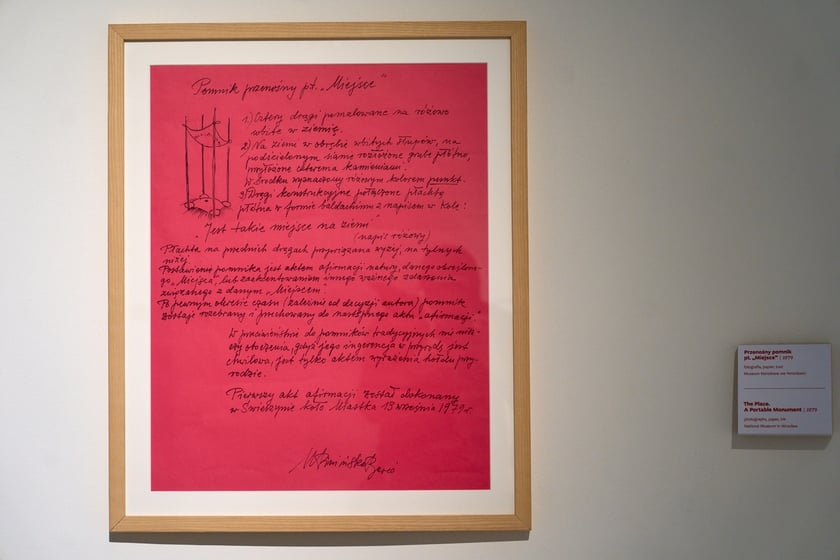 Pomnik przenośny pt. „Miejsce"
1) Cztery drągi pomalowane na różowo
wbite w ziemię.
2) Na ziemi w obrębie wbitych słupów, na
podścielonym sianie rozłożone grube płótno,
przyłożone czterema kamieniami.
W środku wyznaczony różowym kolorem punkt.
3) Drągi konstrukcyjne połączone płachtą
płótna w formie baldachimu z napisem w kole:
„Jest takie miejsce na ziemi"
(napis różowy)
Płachta na przednich drągach przywiązana wyżej, na tylnych
niżej.
Postawienie pomnika jest aktem afirmacji natury, danego określone-
go „Miejsca", lub zaakcentowaniem innego ważnego zdarzenia
związanego z danym „Miejscem".
Po pewnym okresie czasu (zależnie od decyzji autora) pomnik
zostaje rozebrany i przechowany do następnego aktu „afirmacji".
W przeciwieństwie do pomników tradycyjnych nie nisz-
czy otoczenia, gdyż jego ingerencja w przyrodę jest
chwilowa, jest tylko aktem wyrażenia hołdu przy-
rodzie.
Pierwszy akt afirmacji został dokonany
w Świeszynie koło Miastka 13 września 1979 r.
Przenośny pomnik
pt. „Miejsce" | 1979
fotografia, papier, tusz
Muzeum Narodowe we Wrocławiu
The Place.
A Portable Monument | 1979
photography, paper, ink
National Museum in Wrocław